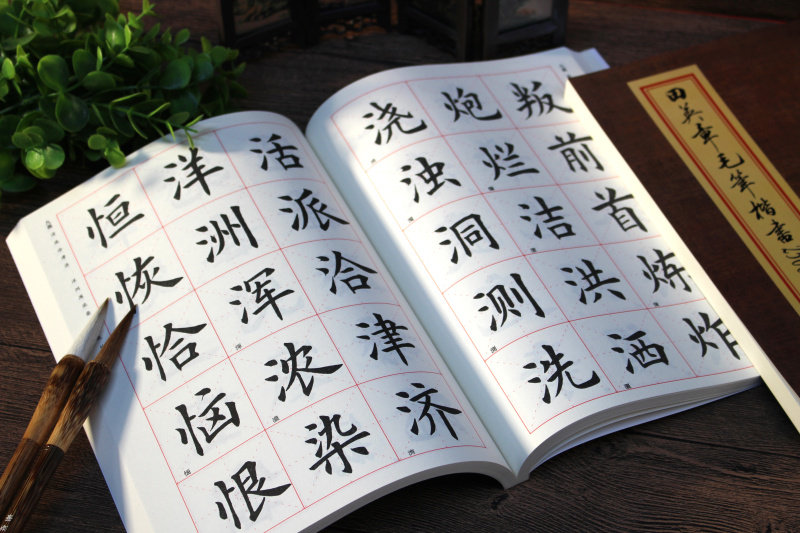 叛前首炼炸
炮烂洁洪洒
浇浊洞测洗
活派洽浔济
洋洲浑浓染
恒恢恰恼恨
田英章毛笔楷书